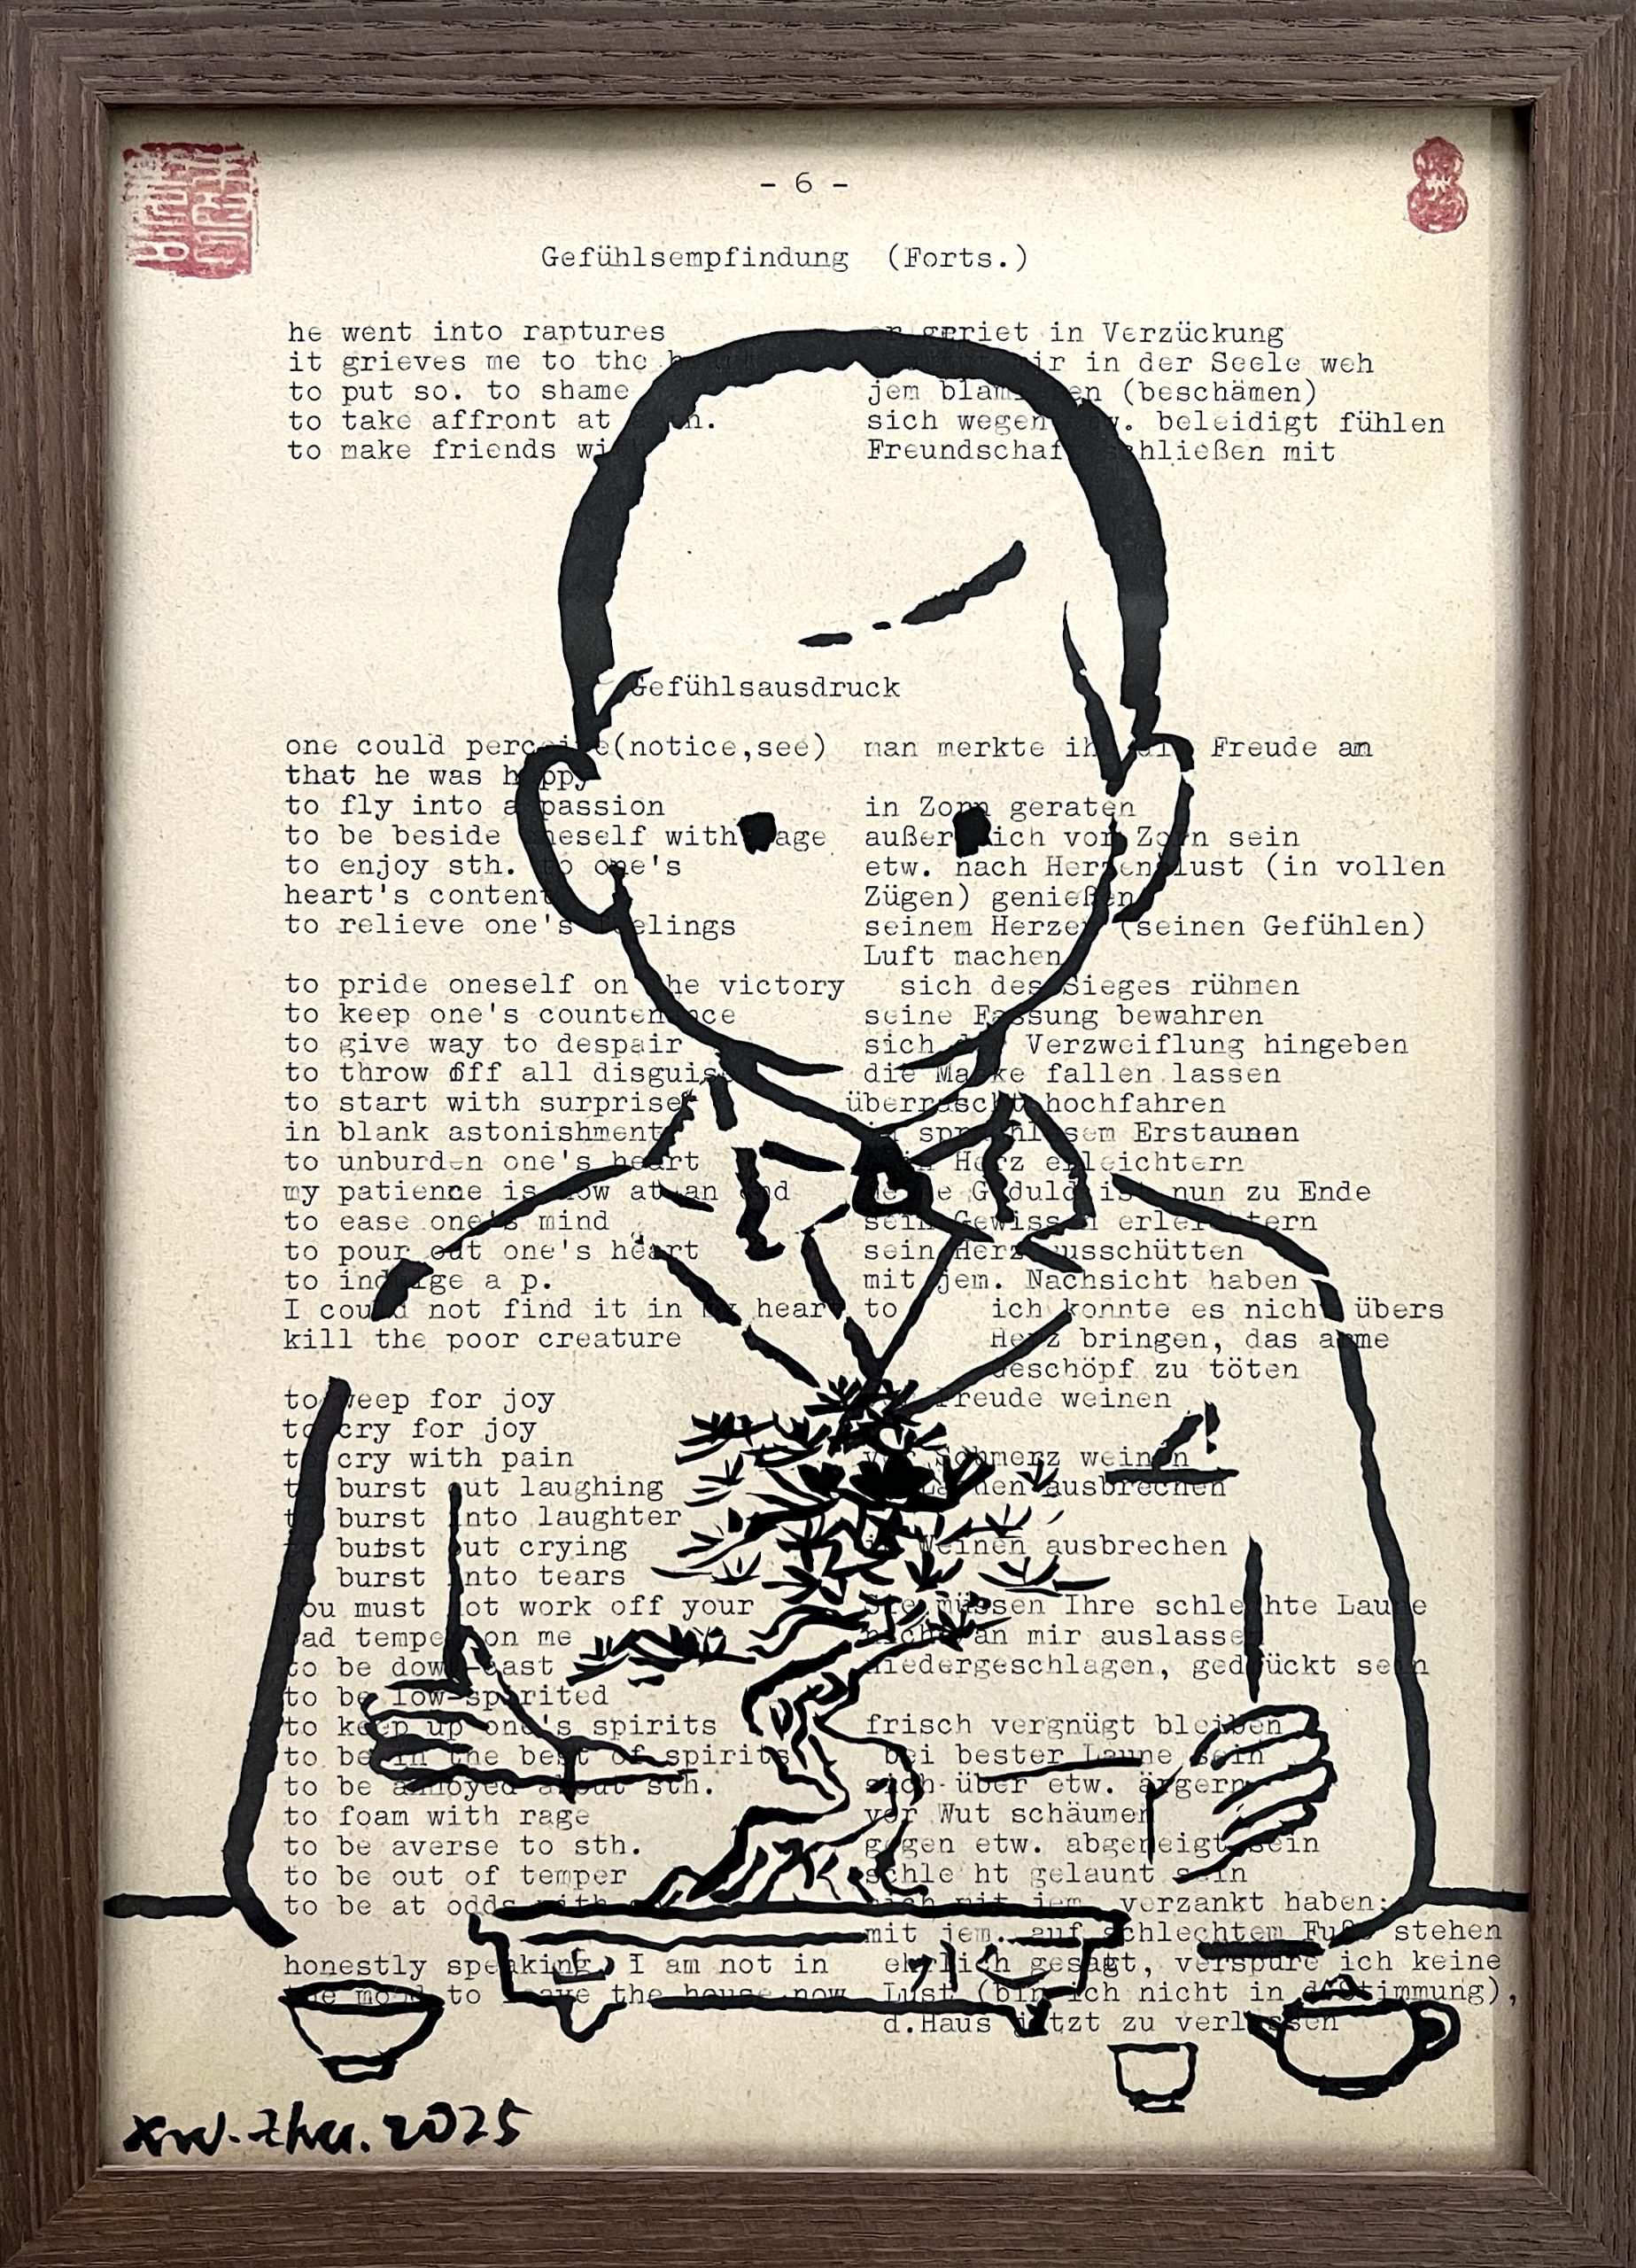 - 6 -
Gefühlsempfindung (Forts.)
he went into raptures geriet in Verzückung
it grieves me to the in der Seele weh
to put so. to shame jem (beschämen)
to take affront at sich wegen beleidigt fühlen
to make friends mit
Gefühlsausdruck
one could (notice,see) man merkte Freude an
that he was happy
to fly into a passion in Zorn geraten
to be beside oneself with rage außer sich vor Zorn sein
to enjoy sth. to one's etw. nach Herzenslust (in vollen
heart's content Zügen) genießen
to relieve one's feelings seinem Herzen (seinen Gefühlen)
Luft machen
to pride oneself on the victory sich des Sieges rühmen
to keep one's countenance seine Fassung bewahren
to give way to despair sich Verzweiflung hingeben
to throw off all disguise die Maske fallen lassen
to start with surprise überrascht hochfahren
in blank astonishment Erstaunen
to unburden one's heart Herz erleichtern
my patience is now at an end Geduld ist nun zu Ende
to ease one's mind sein Gewissen erleichtern
to pour out one's heart sein Herz ausschütten
to indulge a p. mit jem. Nachsicht haben
I could not find it in my heart to ich konnte es nicht übers
kill the poor creature Herz bringen, das arme
Geschöpf zu töten
to weep for joy Freude weinen
to cry for joy
to cry with pain Schmerz weinen
to burst out laughing ausbrechen
to burst into laughter
to burst out crying Weinen ausbrechen
to burst into tears
you must not work off your Sie müssen Ihre schlechte Laune
bad temper on me nicht an mir auslassen
to be down-cast niedergeschlagen, gedrückt sein
to be low-spirited
to keep up one's spirits frisch vergnügt bleiben
to be in the best of spirits bei bester Laune sein
to be annoyed about sth. sich über etw. ärgern
to foam with rage vor Wut schäumen
to be averse to sth. gegen etw. abgeneigt sein
to be out of temper schle ht gelaunt sein
to be at odds with jem. verzankt haben;
mit jem. auf schlechtem Fuße stehen
honestly speaking, I am not in ehrlich gesagt, verspüre ich keine
the mood to leave the house now Lust (bin ich nicht in d.Stimmung),
d.Haus jetzt zu verlassen
xw.zhu.2025